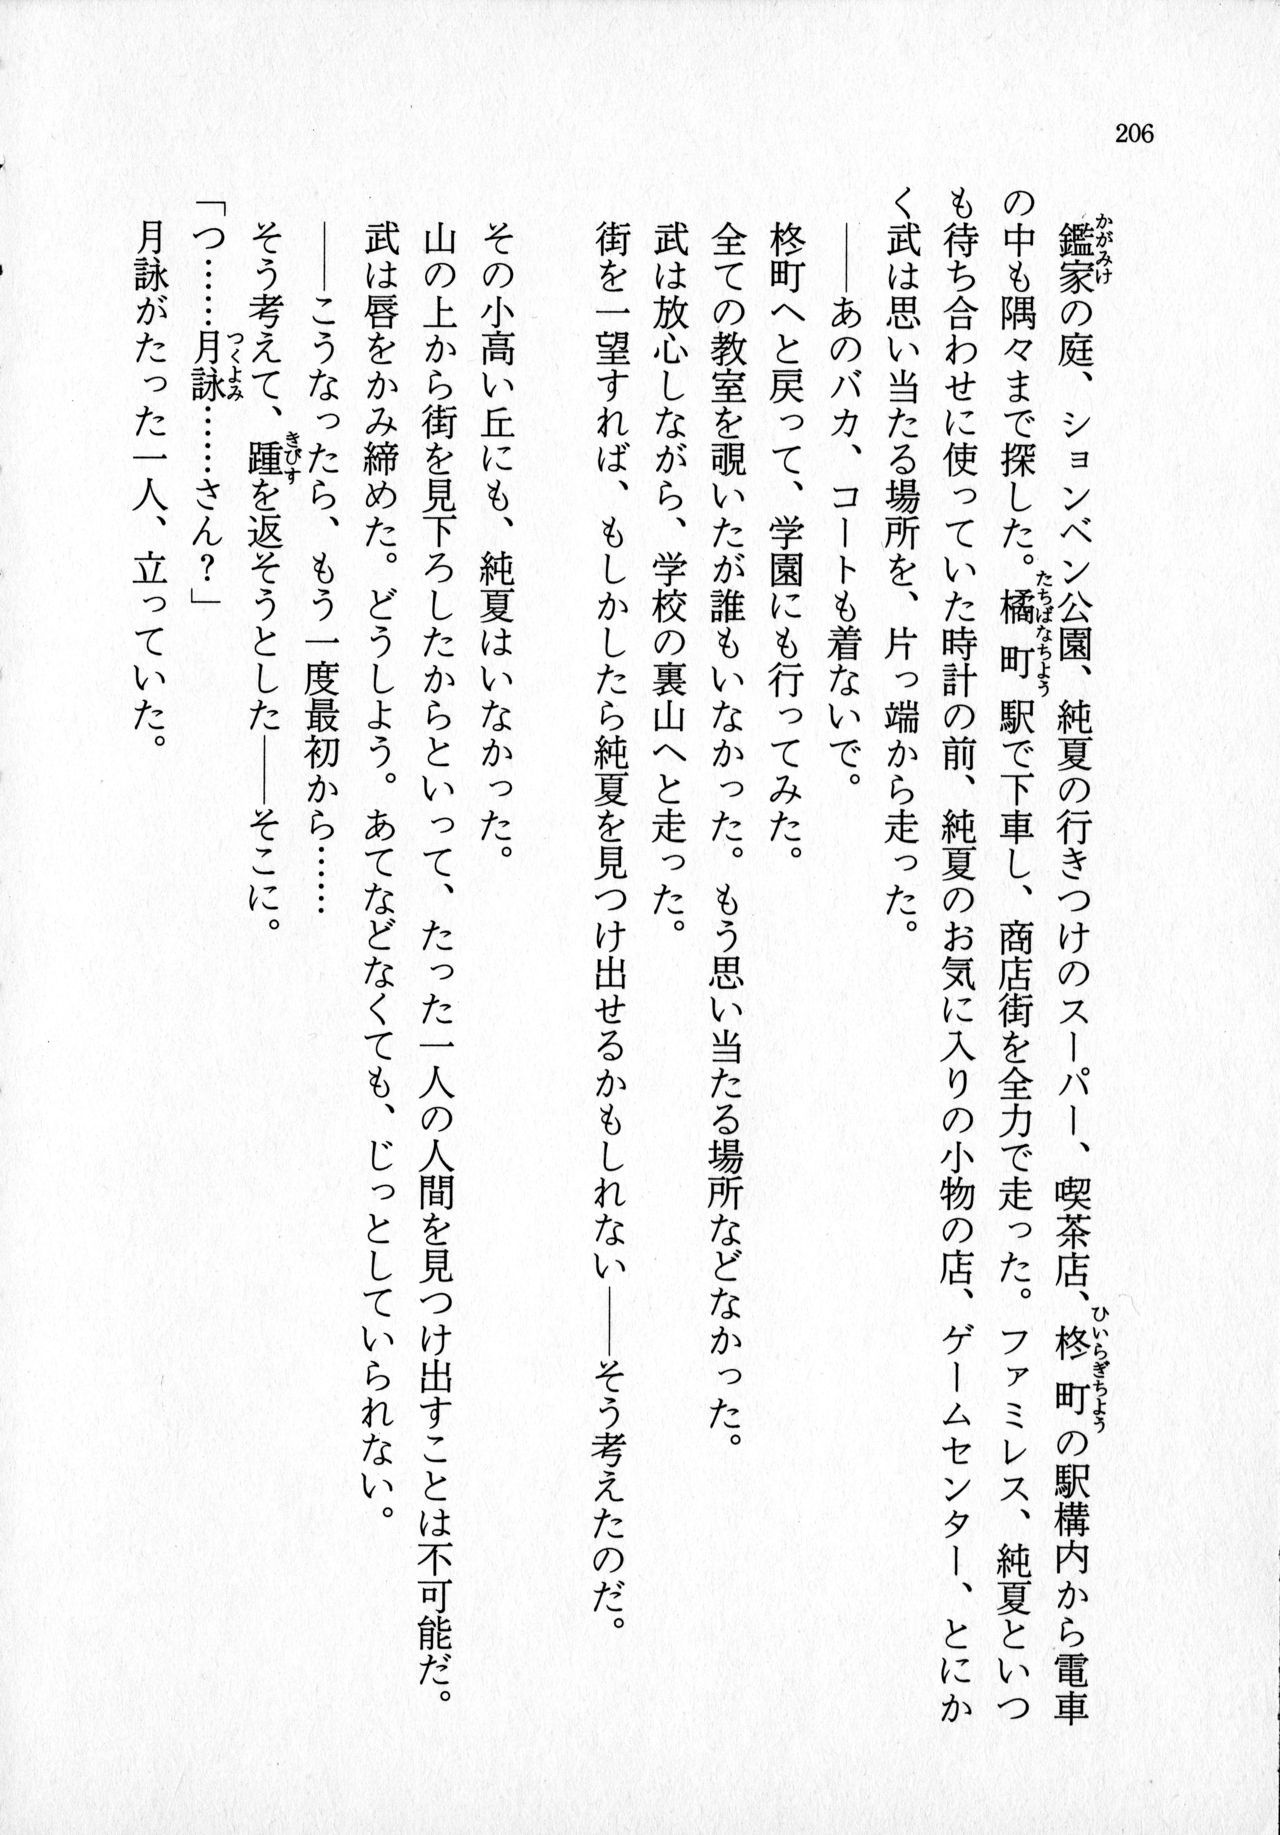 206
鑑家の庭、ションベン公園、純夏の行きつけのスーパー、喫茶店、柊町の駅構内から電車
の中も隅々まで探した。橘町駅で下車し、商店街を全力で走った。ファミレス、純夏といつ
も待ち合わせに使っていた時計の前、純夏のお気に入りの小物の店、ゲームセンター、とにか
く武は思い当たる場所を、片っ端から走った。
――あのバカ、コートも着ないで。
柊町へと戻って、学園にも行ってみた。
全ての教室を覗いたが誰もいなかった。もう思い当たる場所などなかった。
武は放心しながら、学校の裏山へと走った。
街を一望すれば、もしかしたら純夏を見つけ出せるかもしれない――そう考えたのだ。
その小高い丘にも、純夏はいなかった。
山の上から街を見下ろしたからといって、たった一人の人間を見つけ出すことは不可能だ。
武は唇をかみ締めた。どうしよう。あてなどなくても、じっとしていられない。
――こうなったら、もう一度最初から……
そう考えて、踵を返そうとした――そこに。
「つ……月詠……さん？」
月詠がたった一人、立っていた。
かがみけ
ひいらぎちよう
たちばなちよう
きびす
つくよみ